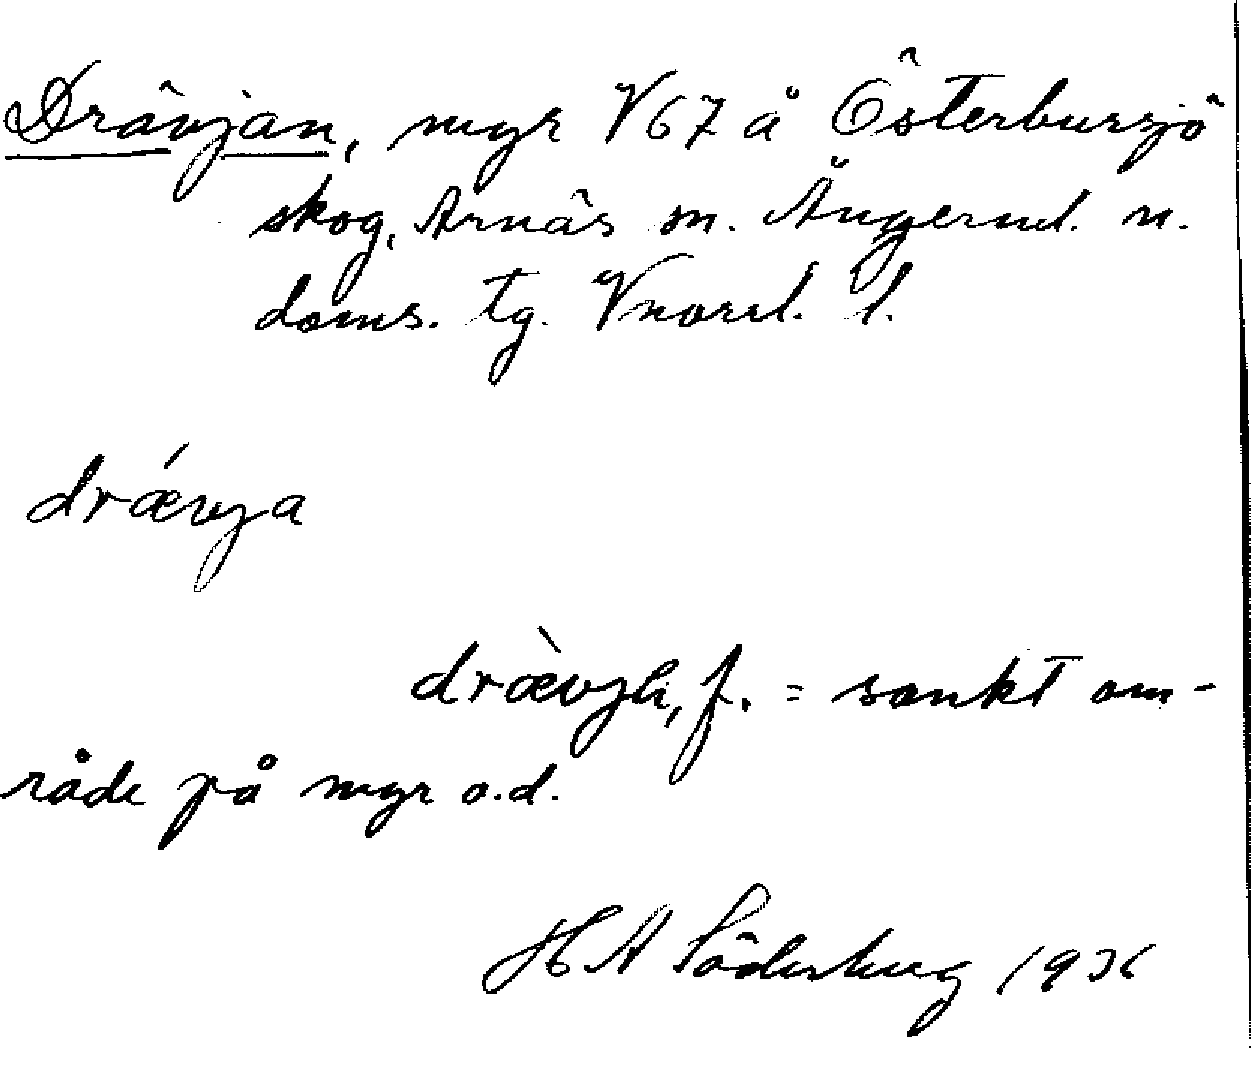 Drävjan, myr V67 å Österbursjö
skog, Arnäs sn. Ångerml. n.
doms. tg. Vnorrl. l.
drǽvja
drævja, f. = sankt om-
råde på myr o.d.
H A Söderberg 1936